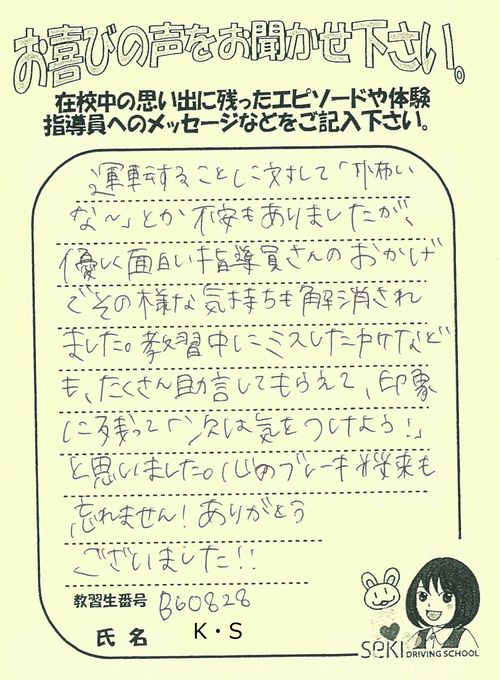 お喜びの声をお聞かせ下さい。
在校中の思い出に残ったエピソードや体験
指導員へのメッセージなどをご記入下さい。
運転することに対して「怖い
な〜」とか不安もありましたが、
優しく面白い指導員さんのおかげ
でその様な気持ちも解消され
ました。教習中にミスした時など
も、たくさん助言してもらえて、印象
に残って「次は気をつけよう!」
と思いました。心のブレーキ将来も
忘れません!ありがとう
ございました!!
教習生番号 B60828
氏名 K・S
SEKI DRIVING SCHOOL